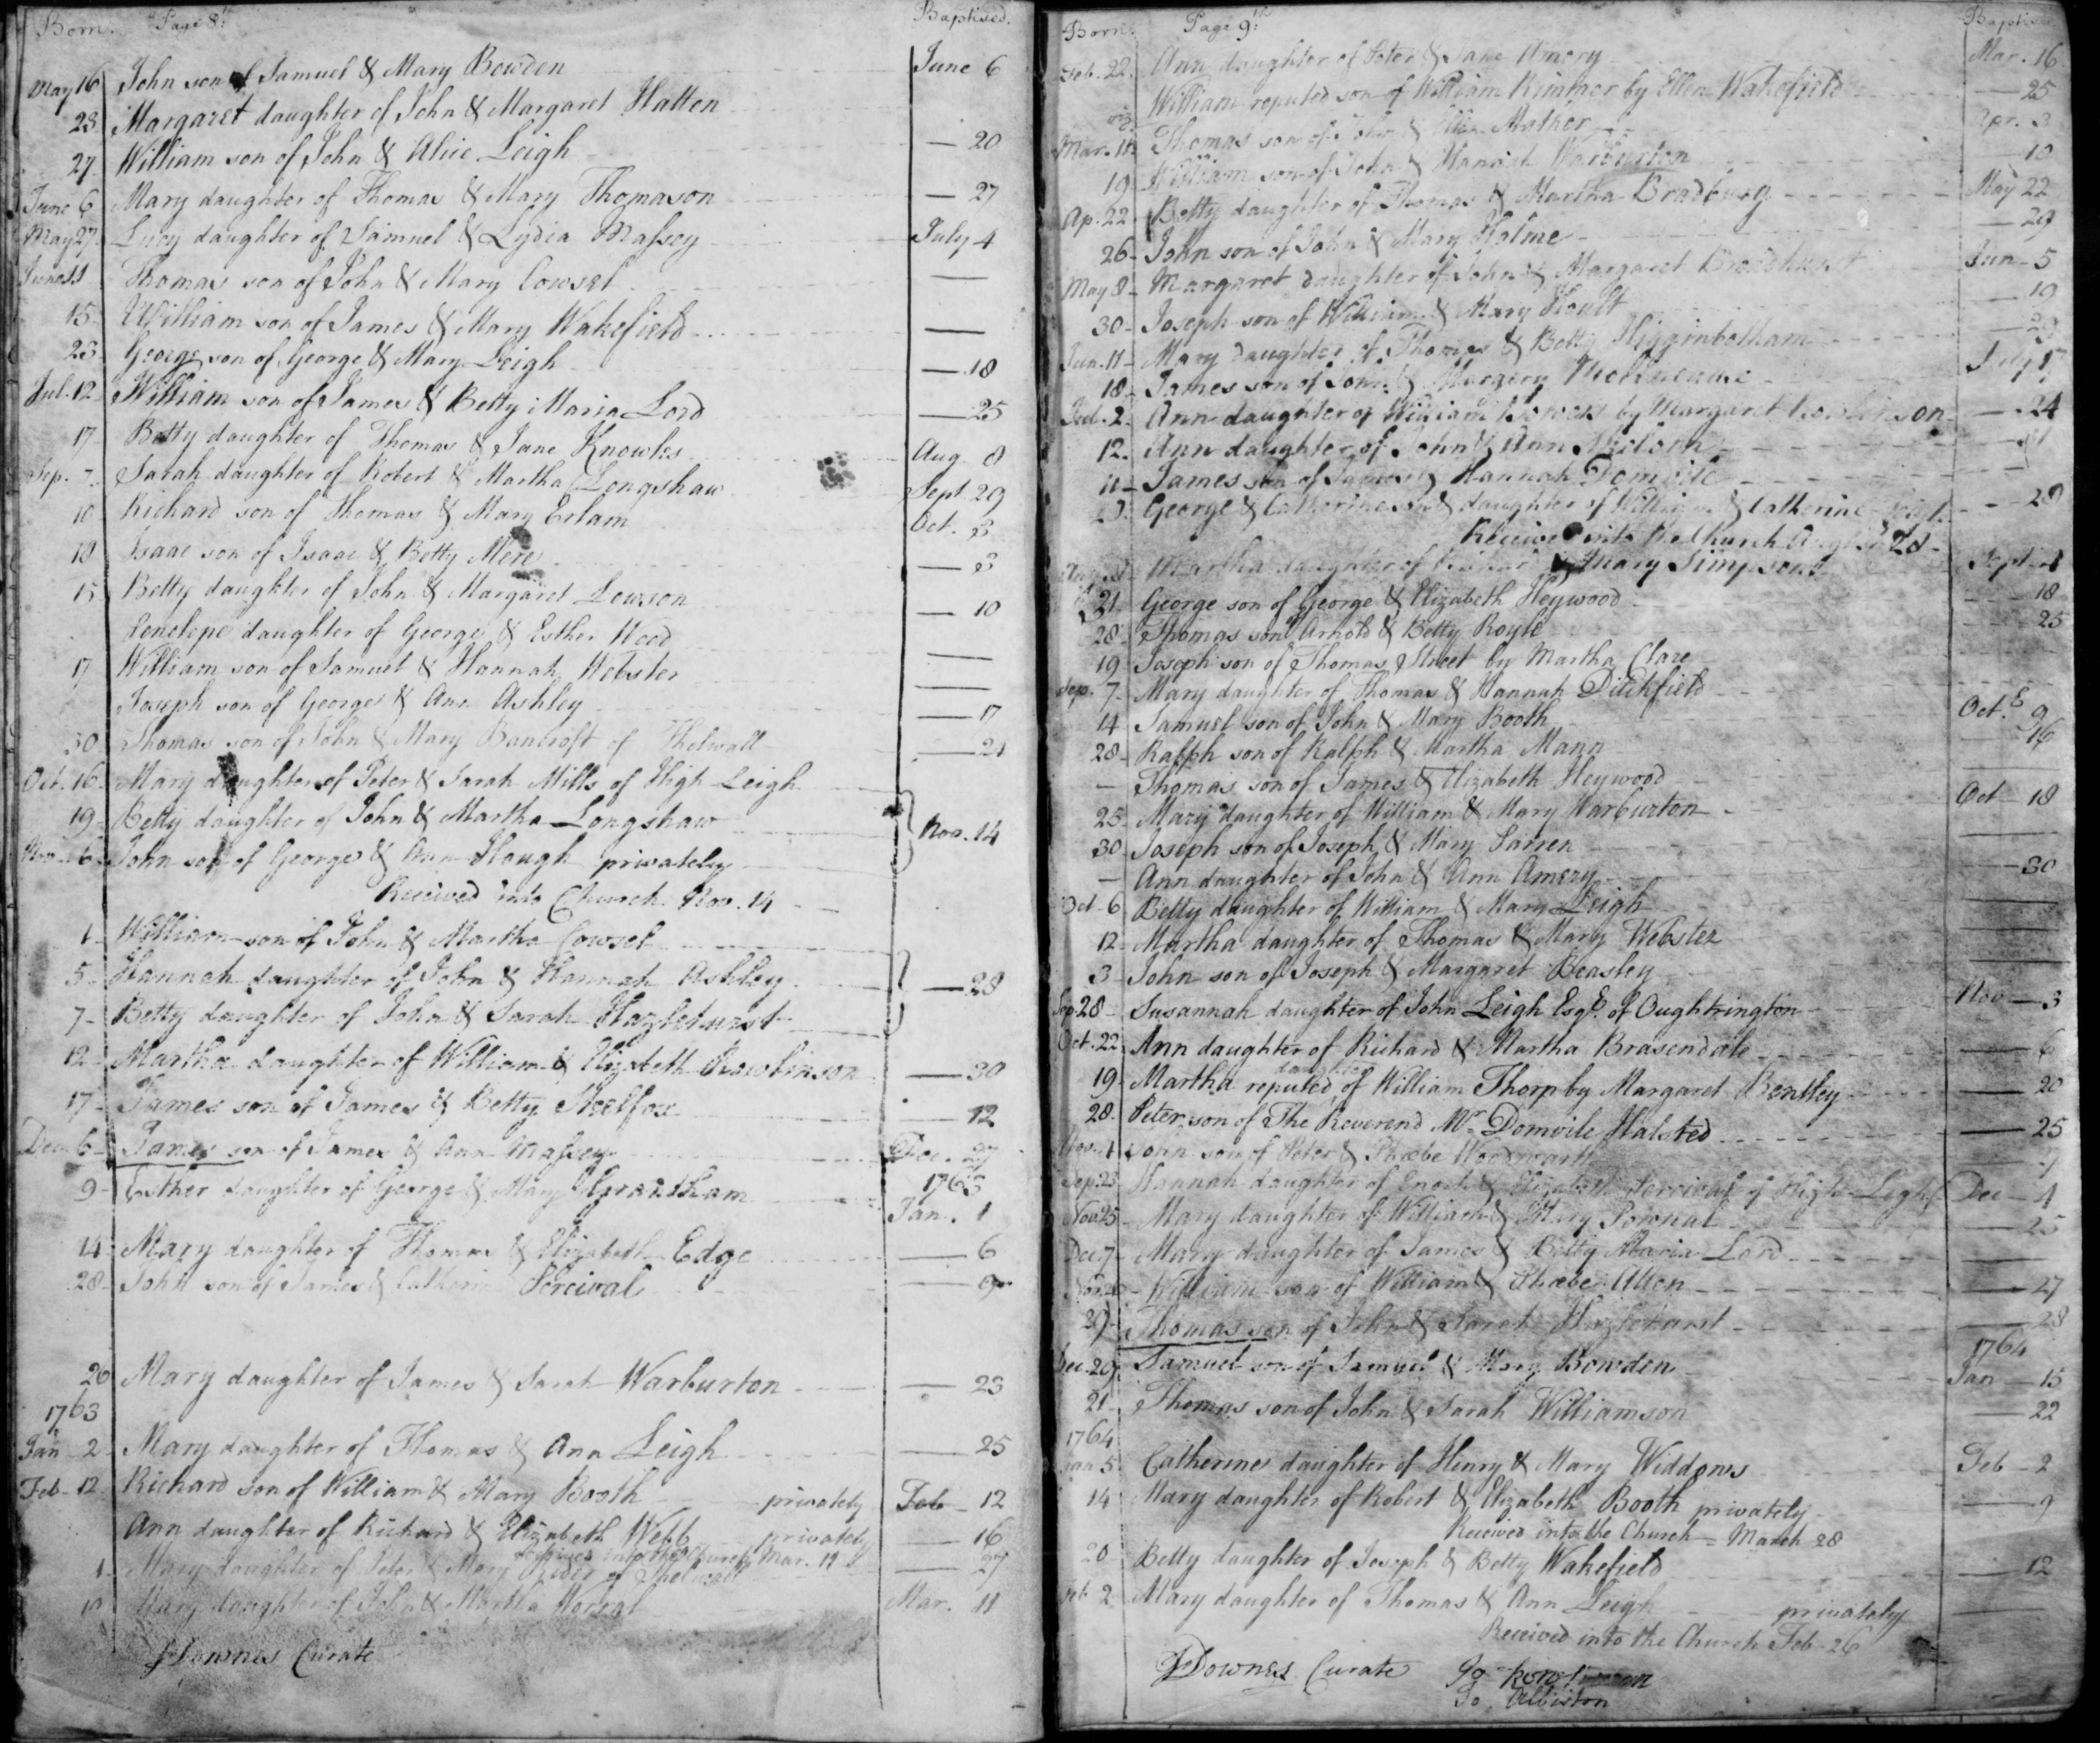 Born. Page 8th Baptised.
May 16 John son of Samuel & Mary Bowden June 6
23 Margaret daughter of John & Margaret Hatton
27 William son of John & Alice Leigh — 20
June 6 Mary daughter of Thomas & Mary Thomason — 27
May 27 Lucy daughter of Samuel & Lydia Massey July 4
June 11 Thomas son of John & Mary Cowsel —
15 William son of James & Mary Wakefield —
23 George son of George & Mary Leigh — 18
Jul. 12 William son of James & Betty Maria Lord — 25
17 Betty daughter of Thomas & Jane Knowles Aug 8
Sep. 7 Sarah daughter of Robert & Martha Longshaw Sept 29
10 Richard son of Thomas & Mary Erlam Oct. 3
18 Isaac son of Isaac & Betty Mere — 3
15 Betty daughter of John & Margaret Lowson — 10
Penelope daughter of George & Esther Wood —
17 William son of Samuel & Hannah Webster —
Joseph son of George & Ann Ashley — 17
30 Thomas son of John & Mary Bancroft of Thelwall — 24
Oct. 16 Mary daughter of Peter & Sarah Mills of High Leigh
19 Betty daughter of John & Martha Longshaw Nov. 14
Nov. 6 John son of George & Ann Hough privately
Received into Church Nov. 14
1 William son of John & Martha Cowsel
5 Hannah daughter of John & Hannah Ashley — 28
7 Betty daughter of John & Sarah Hazlehurst
12 Martha daughter of William & Elizabeth Rawlinson — 30
17 James son of James & Betty Shelfox — 12
Dec. 6 James son of James & Ann Massey Dec. 27
9 Esther daughter of George & Mary Grantham 1763 Jan. 1
14 Mary daughter of Thomas & Elizabeth Edge — 6
28 John son of James & Catherin Percival — 9
26 Mary daughter of James & Sarah Warburton — 23
1763
Jan 2 Mary daughter of Thomas & Ann Leigh — 25
Feb. 12 Richard son of William & Mary Booth privately Feb 12
Ann daughter of Richard & Elizabeth Webb privately — 16
Received into the Church Mar. 11
1 Mary daughter of Peter & Mary Rider of Thelwall — 27
Mary daughter of John & Martha Mar. 11
J Downes Curate
Born. Page 9th Baptised
Feb. 22 Ann daughter of Peter & Jane Amery Mar. 16
William reputed son of William Rimmer by Ellen Wakefield — 25
Mar. 11 Thomas son of John & Ellen Mather Apr. 3
19 William son of John & Hannah Warburton — 10
Ap. 22 Betty daughter of Thomas & Martha Bradburg May 22
26 John son of John & Mary Holme — 29
May 8 Margaret daughter of John & Margaret Broadhurst Jun 5
30 Joseph son of William & Mary Hoult — 19
Jun. 11 Mary daughter of Thomas & Betty Higginbotham
18 James son of John & Margery July 17
Jul. 2 Ann daughter of William by Margaret — 24
12 Ann daughter of John & Ann
11 James son of James & Hannah Domvile
George & Catherine son & daughter of William & Catherine — 28
Received into the Church August 28
Martha daughter of & Mary Simpson Sept 4
21 George son of George & Elizabeth Heywood — 18
28 Thomas son of Arnold & Betty Royle — 25
19 Joseph son of Thomas Street by Martha Clare
Sep. 7 Mary daughter of Thomas & Hannah Ditchfield
14 Samuel son of John & Mary Booth Oct. 9
28 Ralph son of Ralph & Martha Mann — 16
— Thomas son of James & Elizabeth Heywood
25 Mary daughter of William & Mary Warburton Oct 18
30 Joseph son of Joseph & Mary Sarren —
— Ann daughter of John & Ann Amery — 30
Oct 6 Betty daughter of William & Mary Leigh —
12 Martha daughter of Thomas & Mary Webster —
3 John son of Joseph & Margaret Beasley —
Sep. 28 Susannah daughter of John Leigh Esqr. of Oughtrington Nov — 3
Oct. 22 Ann daughter of Richard & Martha Brasendale — 6
19 Martha reputed daughter of William Thorp by Margaret Bentley — 20
28 Peter son of The Reverend Mr. Domvile Halsted — 25
Nov. 1 John son of Peter & Phæbe Woodward
Sep. 23 Hannah daughter of Enoch & Elizabeth Percival of High Leigh Dec — 4
Nov 25 Mary daughter of William & Mary Pownal — 25
Dec 7 Mary daughter of James & Betty Maria Lord —
William son of William & Phæbe Allen — 27
29 Thomas son of John & Sarah Hazlehurst — 28
Dec. 29 Samuel son of Samuel & Mary Bowden 1764 Jan — 15
21 Thomas son of John & Sarah Williamson — 22
1764
Jan 5 Catherine daughter of Henry & Mary Widdows Feb — 2
14 Mary daughter of Robert & Elizabeth Booth privately — 9
Received into the Church March 28
20 Betty daughter of Joseph & Betty Wakefield — 12
Feb 2 Mary daughter of Thomas & Ann Leigh privately —
Received into the Church Feb. 26
J Downes Curate
Jo. Albiston